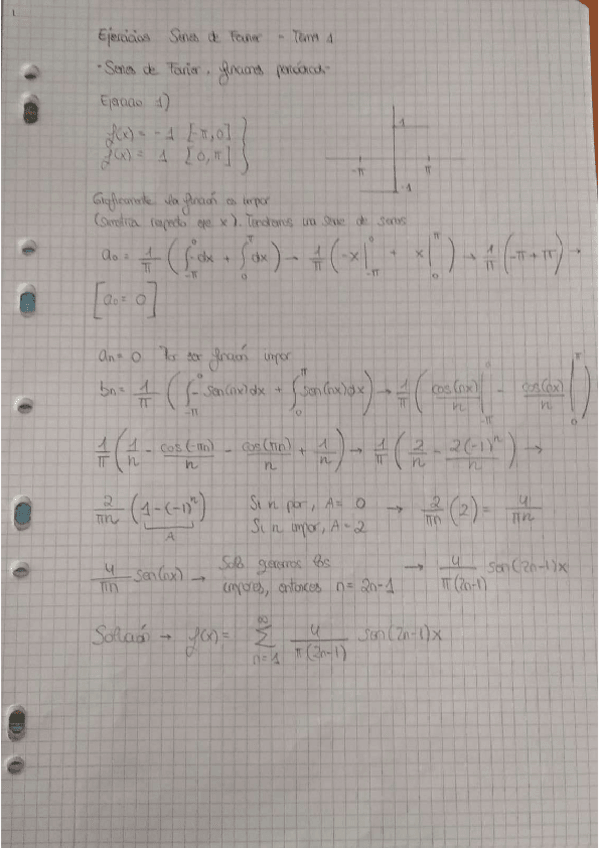 1
Ejercicios Series de Fourier - Tema 1
- Series de Fourier, funciones periódicas -
Ejercicio 1)
f(x) = -1 [-π, 0]
f(x) = 1 [0, π]
1
-π π
-1
Gráficamente la función es impar
(simetría respecto eje x). Tendremos una serie de senos
a₀ = 1/π ( ∫_{-π}^{0} -dx + ∫_{0}^{π} dx ) → 1/π ( -x |_{-π}^{0} + x |_{0}^{π} ) → 1/π (-π + π) →
[a₀ = 0]
aₙ = 0 Por ser función impar
bₙ = 1/π ( ∫_{-π}^{0} -sen(nx)dx + ∫_{0}^{π} sen(nx)dx ) → 1/π ( cos(nx)/n |_{-π}^{0} - cos(nx)/n |_{0}^{π} )
1/π ( 1/n - cos(-πn)/n - cos(πn)/n + 1/n ) → 1/π ( 2/n - 2(-1)ⁿ/n ) →
2/πn (1-(-1)ⁿ) Si n par, A = 0 → 2/πn (2) = 4/πn
A Si n impar, A = 2
4/πn sen(nx) → Solo queremos los → 4/π(2n-1) sen(2n-1)x
impares, entonces n = 2n-1
Solución → f(x) = ∑_{n=1}^{∞} 4/π(2n-1) sen(2n-1)x